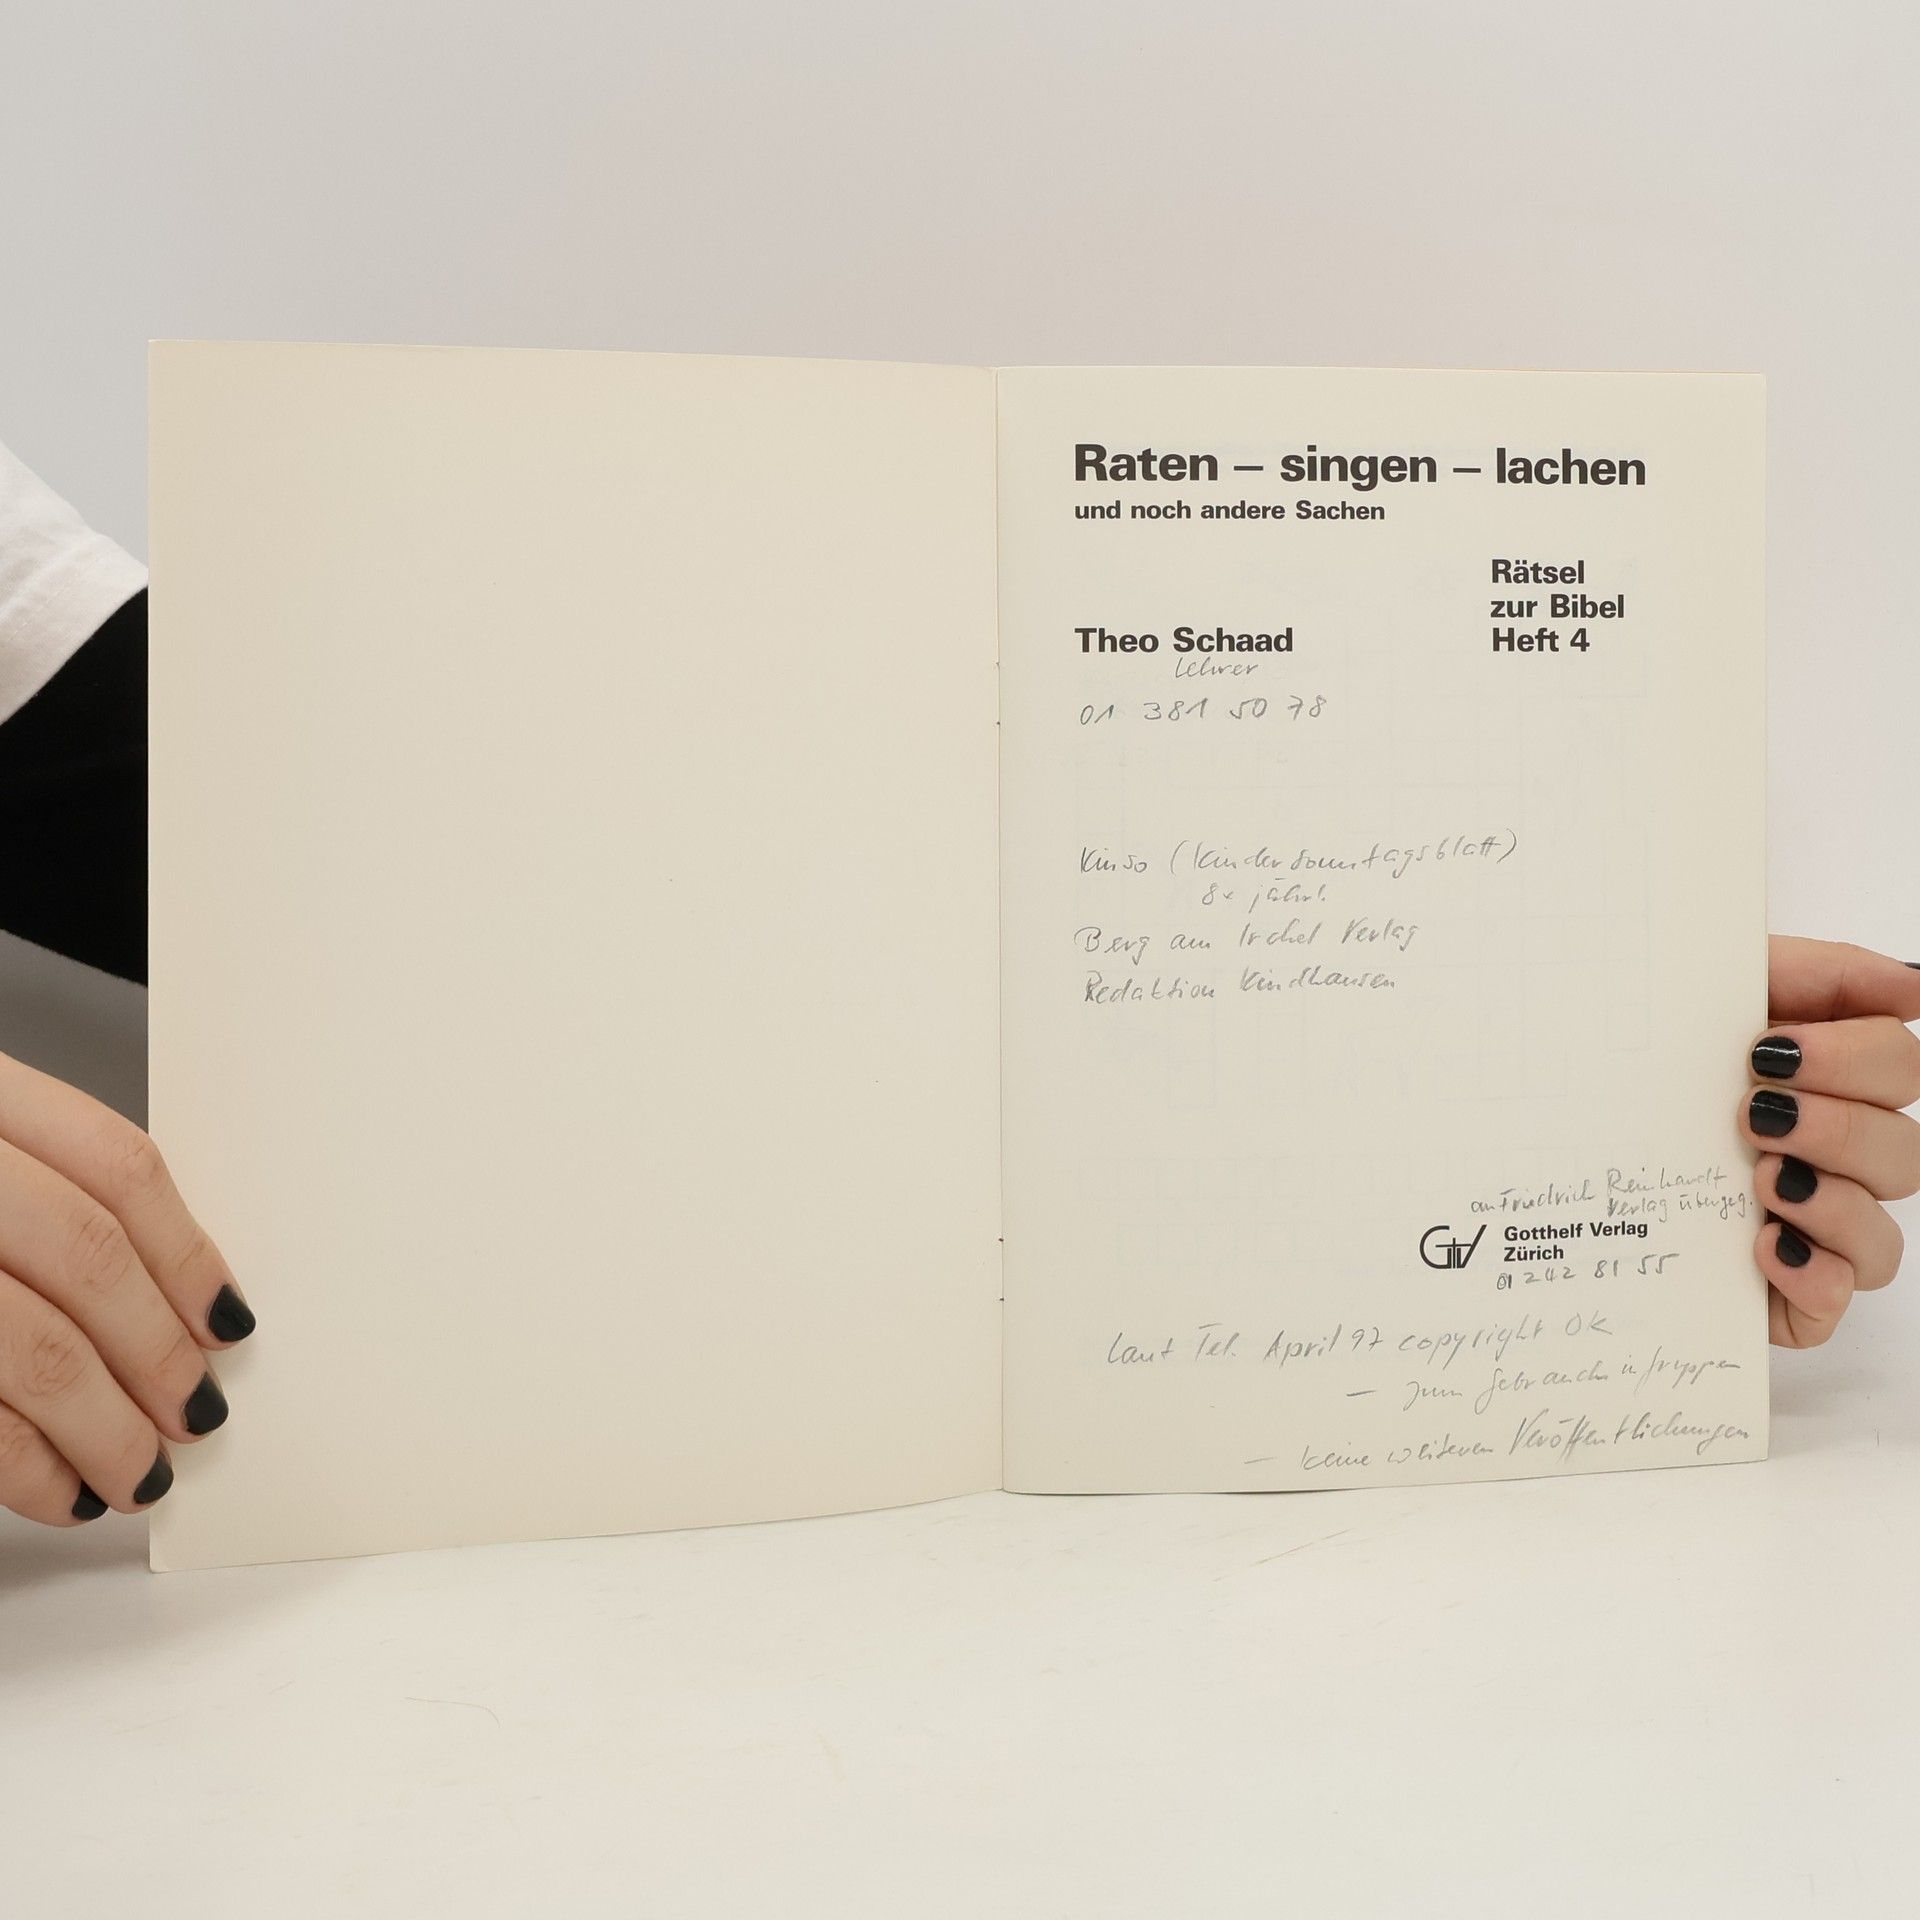 Raten – singen – lachen
und noch andere Sachen
Rätsel
zur Bibel
Theo Schaad Heft 4
Lehrer
01 381 50 78
Kinso (Kindersonntagsblatt)
8x jährl.
Berg am Irchel Verlag
Redaktion Kindhausen
an Friedrich Reinhardt
Verlag übergeg.
GV Gotthelf Verlag
Zürich
01 242 81 55
laut Tel. April 97 copyright OK
– zum Gebrauch in Gruppen
– keine weiteren Veröffentlichungen